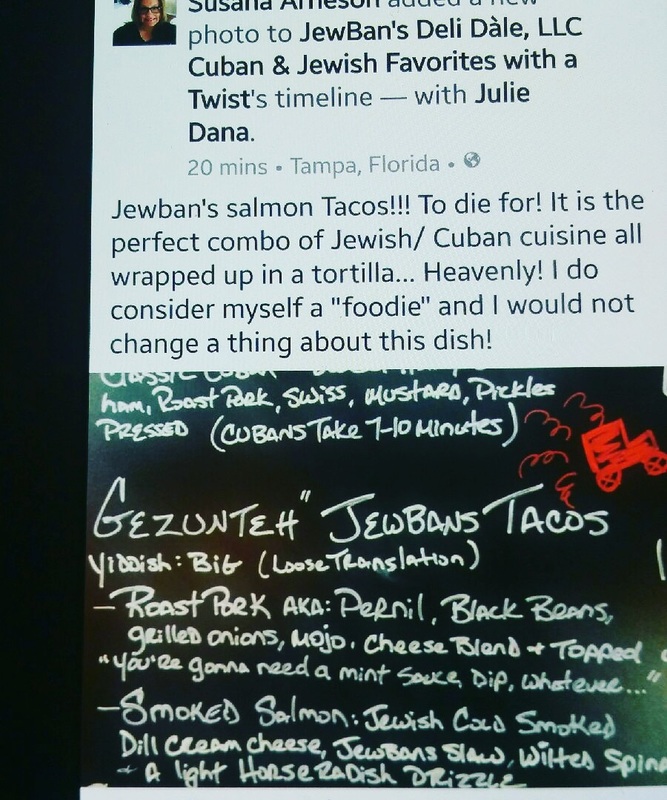 Susana Arneson added a new
photo to JewBan's Deli Dàle, LLC
Cuban & Jewish Favorites with a
Twist's timeline — with Julie
Dana.
20 mins • Tampa, Florida •
Jewban's salmon Tacos!!! To die for! It is the
perfect combo of Jewish/ Cuban cuisine all
wrapped up in a tortilla... Heavenly! I do
consider myself a "foodie" and I would not
change a thing about this dish!
Classic Cuban
ham, Roast Pork, Swiss, Mustard, Pickles
PRESSED (CUBANS TAKE 7-10 Minutes)
GEZUNTEH" JEWBANS TACOS
Yiddish: BIG (Loose Translation)
- ROAST PORK AKA: Pernil, Black Beans,
grilled onions, Mojo, Cheese Blend + TOPPED
"you're gonna need a mint sauce, Dip, whatever..."
- SMOKED Salmon: Jewish Cold Smoked
Dill cream cheese, JewBans Slaw, Wilted Spina
+ A light HORSERADISH DRIZZLE